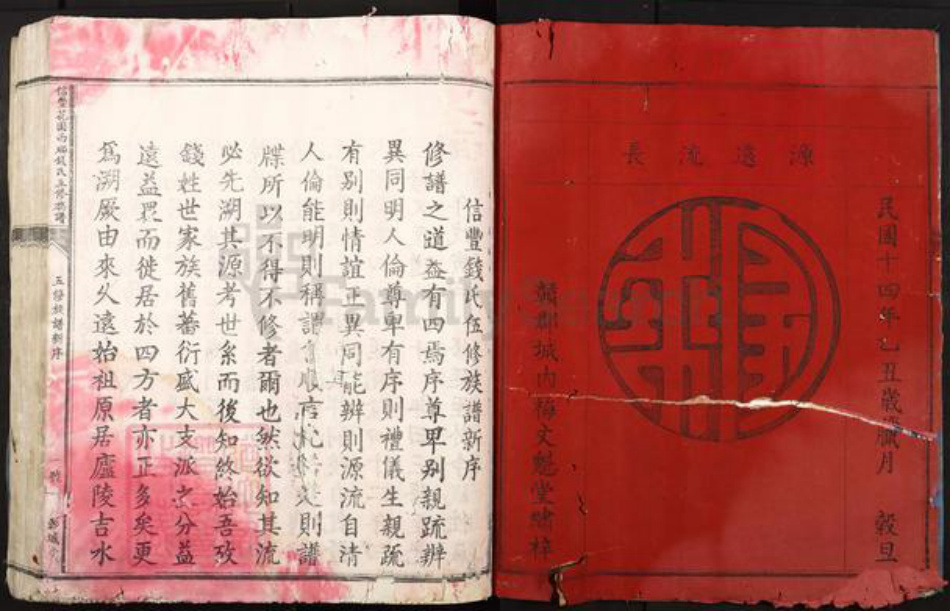 源遠流長
民國十四年乙丑歲臘月 穀旦
贛郡城內梅文魁堂晴梓
信豐錢氏伍修族譜新序
修譜之道葢有四焉序尊卑别親疏辨
異同明人倫尊卑有序則禮儀生親疏
有别則情誼正異同能辨則源流自清
人倫能明則稱謂言順則譜
牒所以不得不修者爾也然欲知其流
必先溯其源考世系而後知終始吾攷
錢姓世家族舊蕃衍盛大支派之分益
遠益衆而徙居於四方者亦正多矣更
爲溯厥由來久遠始祖原居廬陵吉水
錢氏五修族譜
五修族譜新序
一號
彭城堂
FamilySearch